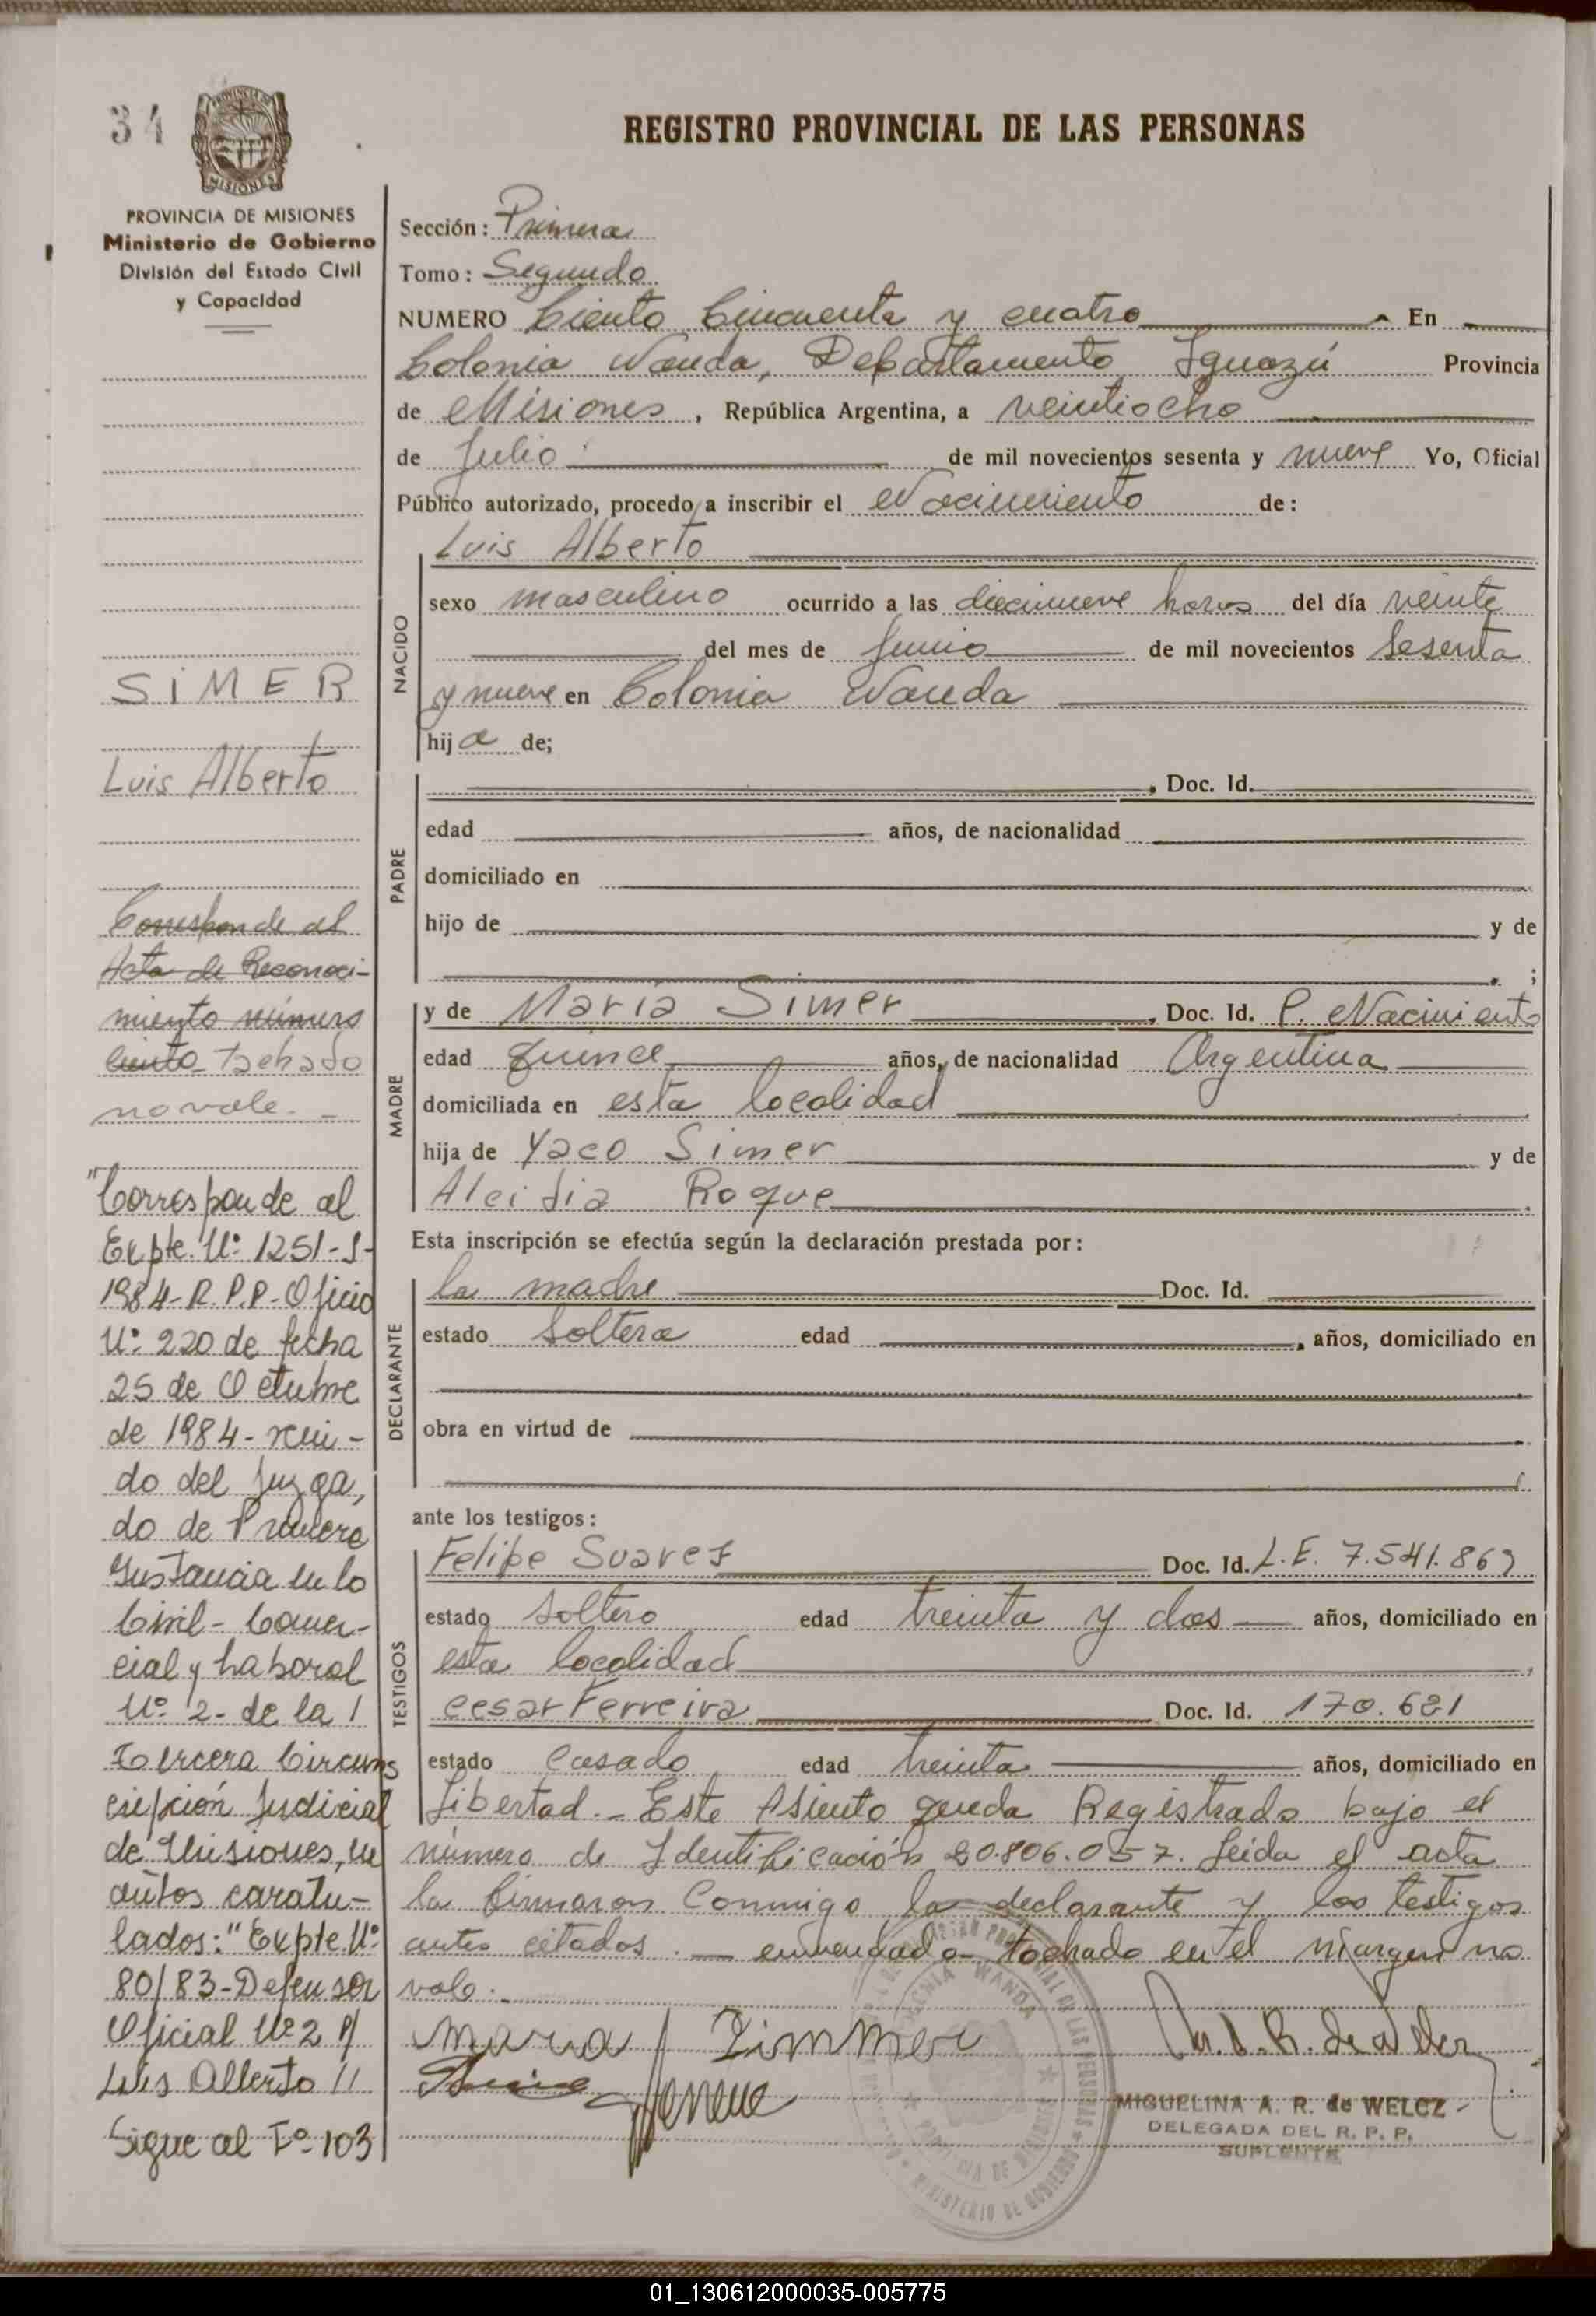 34
MISIONES
PROVINCIA DE MISIONES
Ministerio de Gobierno
División del Estado Civil
y Capacidad
REGISTRO PROVINCIAL DE LAS PERSONAS
Sección: Primera
Tomo: Segundo
NUMERO Ciento Cincuenta y cuatro En
Colonia Wanda, Departamento Iguazú Provincia
de Misiones, República Argentina, a veintiocho
de Julio de mil novecientos sesenta y nueve Yo, Oficial
Público autorizado, procedo a inscribir el Nacimiento de:
Luis Alberto
NACIDO
sexo masculino ocurrido a las diecinueve horas del día veinte
del mes de Junio de mil novecientos Sesenta
y nueve en Colonia Wanda
hija de;
PADRE
, Doc. Id.
edad años, de nacionalidad
domiciliado en
hijo de y de
;
MADRE
y de Maria Simer, Doc. Id. P. Nacimiento
edad quince años, de nacionalidad Argentina
domiciliada en esta localidad
hija de Yaco Simer y de
Alcidia Roque
Esta inscripción se efectúa según la declaración prestada por:
DECLARANTE
la madre Doc. Id.
estado Soltera edad , años, domiciliado en
obra en virtud de
ante los testigos:
TESTIGOS
Felipe Suarez Doc. Id. L.E. 7.541.869
estado soltero edad treinta y dos años, domiciliado en
esta localidad
cesar Ferreira Doc. Id. 170.681
estado casado edad treinta años, domiciliado en
Libertad.- Este Asiento queda Registrado bajo el
número de Identificación 20.806.057. Leida el acta
la firmaron Conmigo la declarante y los testigos
antes citados. — enmendado- tachado en el margen no
vale.-
Maria Zimmer
MIGUELINA A. R. de WELCZ
DELEGADA DEL R. P. P.
SUPLENTE
SiMER
Luis Alberto
Corresponde al
Acta de Reconoci-
miento número
ciento tachado
no vale. -
"Corresponde al
Expte. Nº 1251-S-
1984-R.P.P.-Oficio
Nº 220 de fecha
25 de Octubre
de 1984-reci-
do del Juzga,
do de Primera
Instancia en lo
Civil-Comer-
cial y Laboral
Nº 2- de la
Tercera Circuns
cripción Judicial
de Misiones, en
autos caratu-
lados: "Expte. Nº
80/83-Defensor
Oficial Nº 2 P/
Luis Alberto //
Sigue al Fº 103
COLONIA WANDA
MINISTERIO DE GOBIERNO
01_130612000035-005775